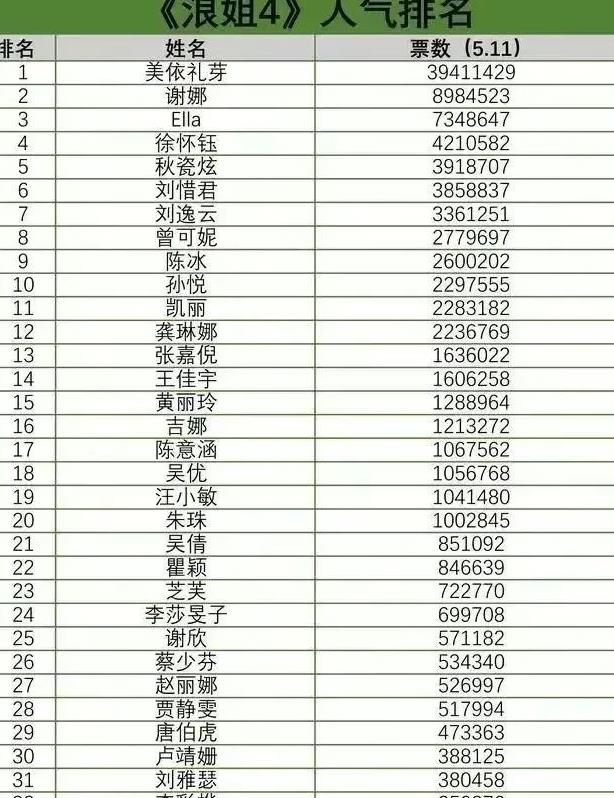 《浪姐4》人气排名
排名 姓名 票数（5.11）
1 美依礼芽 39411429
2 谢娜 8984523
3 Ella 7348647
4 徐怀钰 4210582
5 秋瓷炫 3918707
6 刘惜君 3858837
7 刘逸云 3361251
8 曾可妮 2779697
9 陈冰 2600202
10 孙悦 2297555
11 凯丽 2283182
12 龚琳娜 2236769
13 张嘉倪 1636022
14 王佳宇 1606258
15 黄丽玲 1288964
16 吉娜 1213272
17 陈意涵 1067562
18 吴优 1056768
19 汪小敏 1041480
20 朱珠 1002845
21 吴倩 851092
22 瞿颖 846639
23 芝芙 722770
24 李莎旻子 699708
25 谢欣 571182
26 蔡少芬 534340
27 赵丽娜 526997
28 贾静雯 517994
29 唐伯虎 473363
30 卢靖姗 388125
31 刘雅瑟 380458